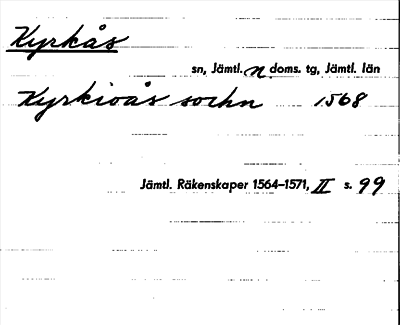 Kyrkås
sn, Jämtl. n doms. tg, Jämtl. län
Kyrkioås sochn 1568
Jämtl. Räkenskaper 1564–1571, II s. 99